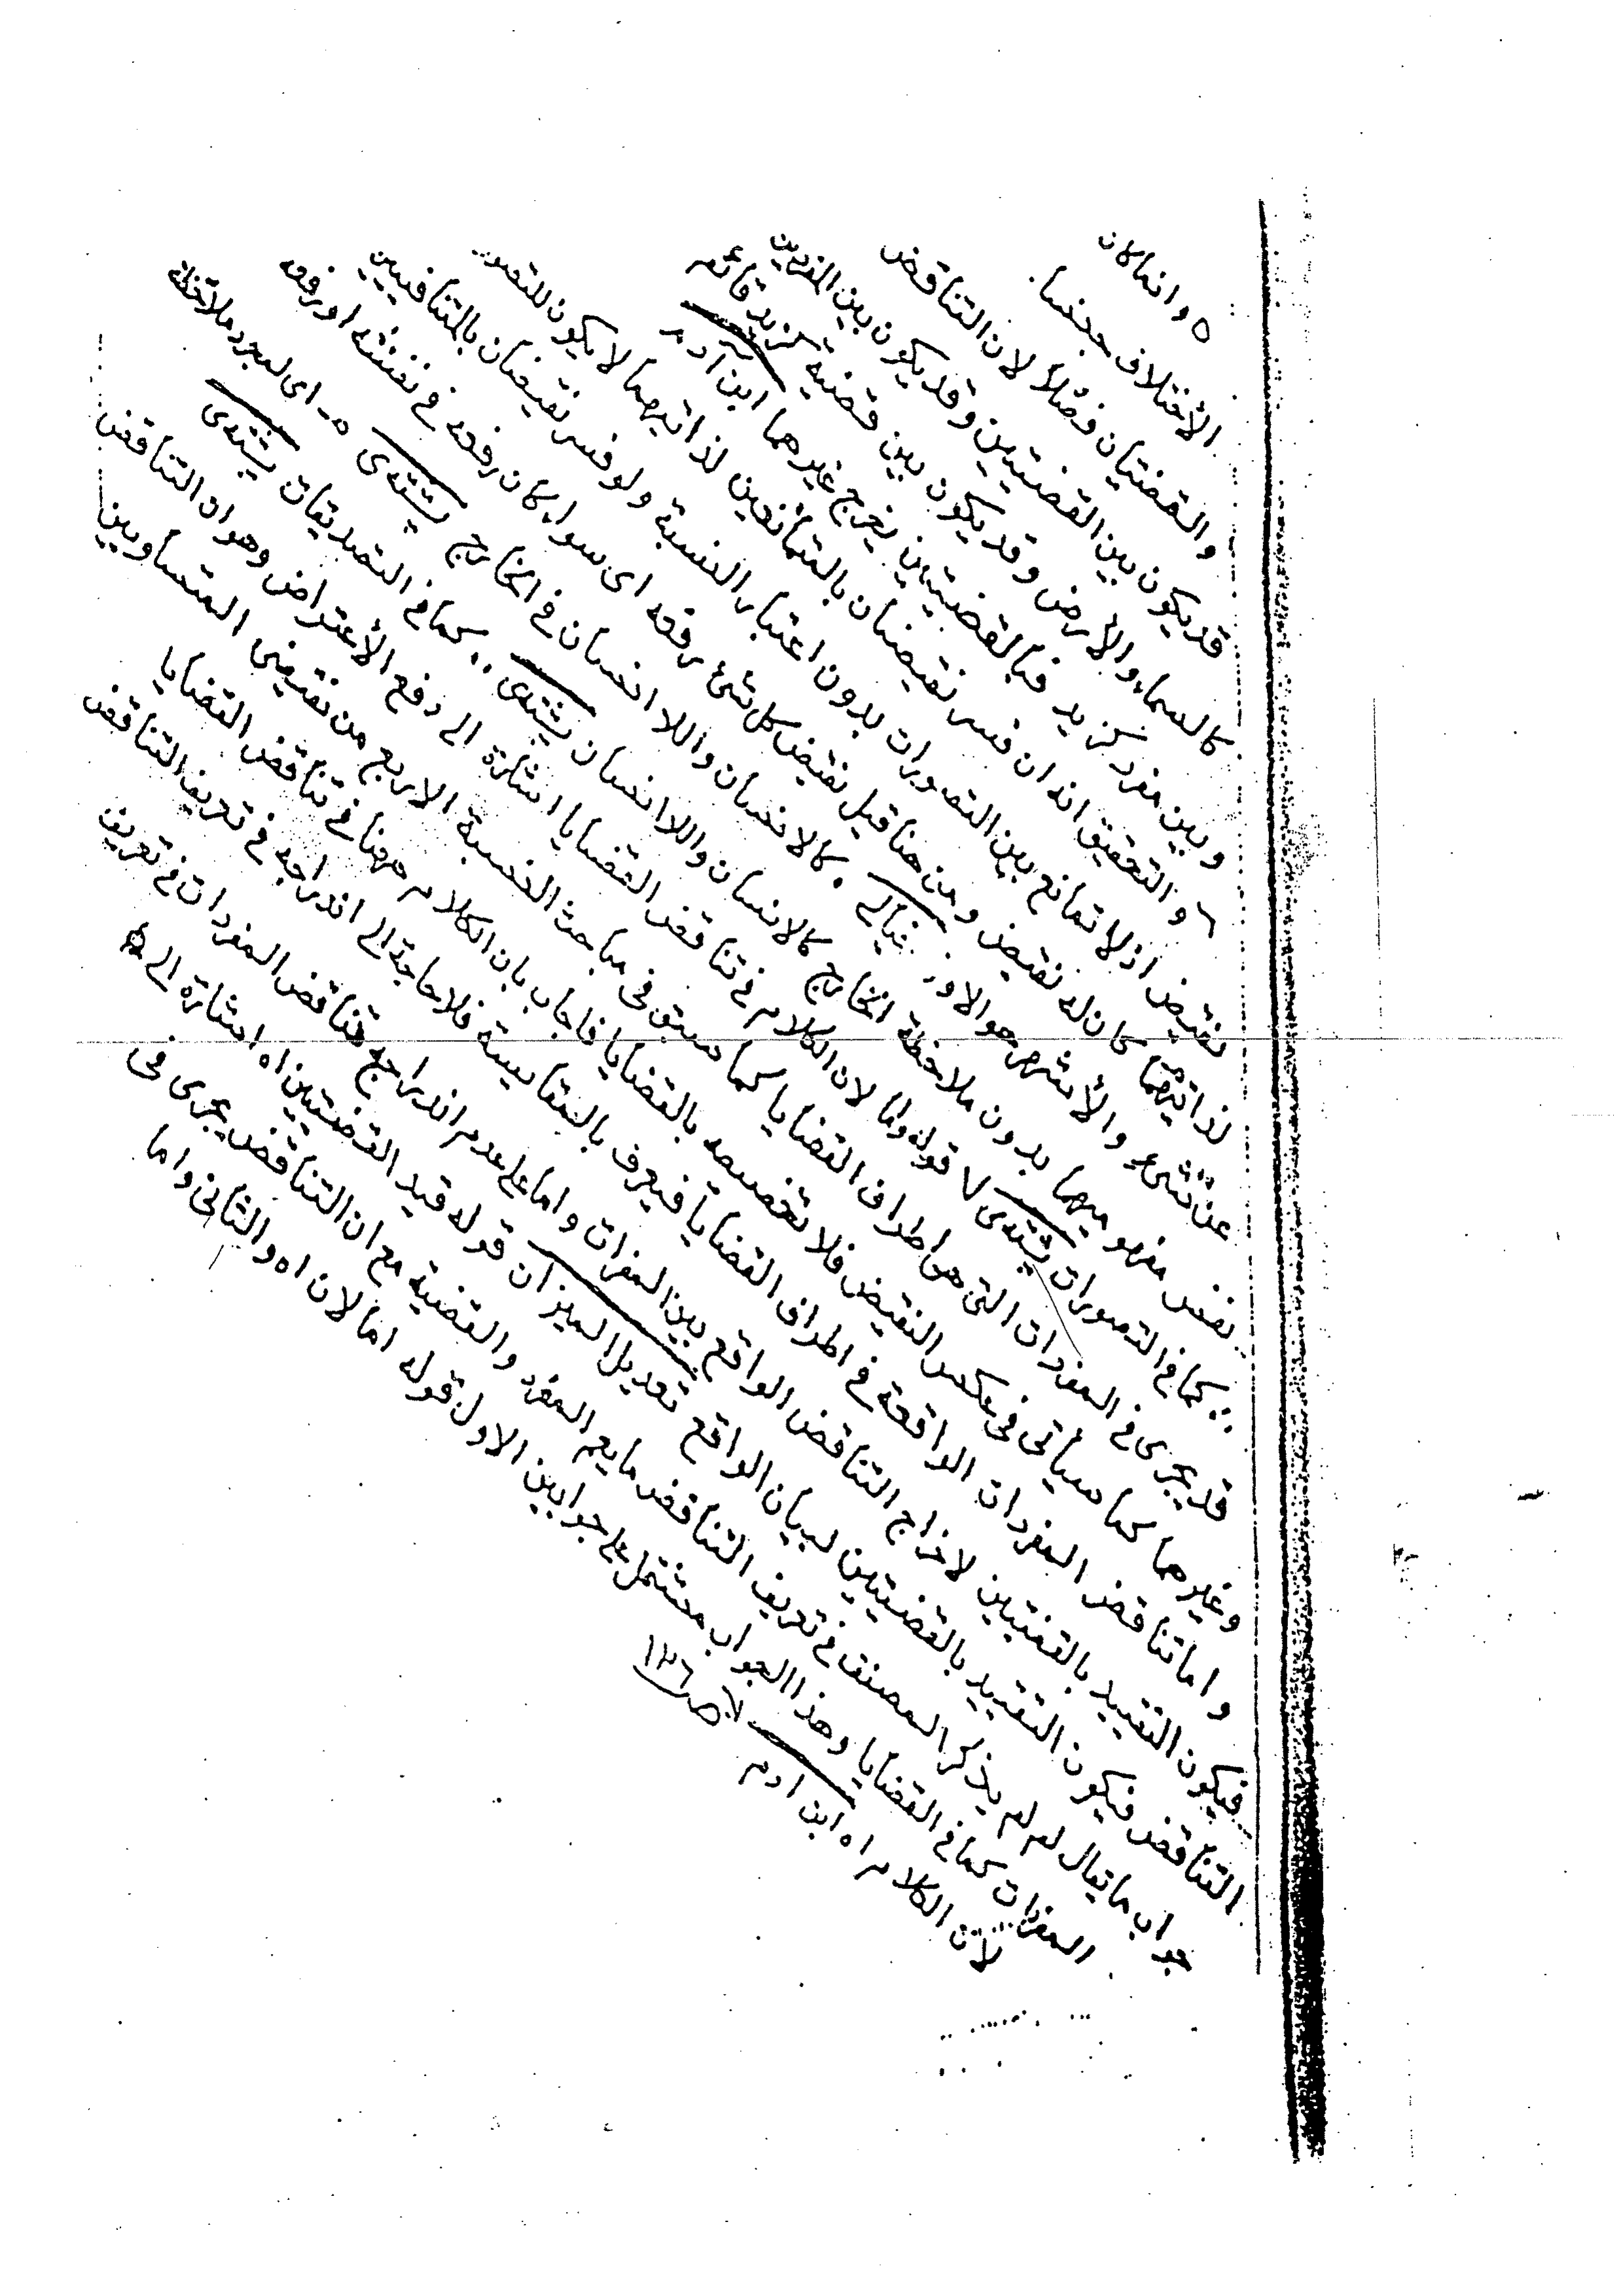 ٥ وانما كان
الأختلاف جنسا.
والقضيتان فصلا لان التناقض
قد يكون بين القضيتين وقد يكون بين المفردين
كالسماء والأرض وقد يكون بين قضية كزيد قائم
وبين مفرد كزيد فبالقضيتين يخرج غيرهما ابن آدم
٦ والتحقيق انه ان فسر نقيضان بالمتمانعين لذاتيهما لا يكون للتصور
نقيض اذ لا تمانع بين التصورات بدون اعتبار النسبة ولو فسر نقيضان بالمتنافيين
لذاتيهما كان له نقيض ومن هنا قيل نقيض كل شئ رفعه اى سواء كان رفعه فى نفسه او رفعه
عن شئ والأشهر هو الاول خيالى . كالانسان واللا انسان فى الخارج يشتدى ٥- اى لمجرد ملاحظة
نفس مفهوميهما بدون ملاحظة الخارج كالانسان واللا انسان يشتدى .. كما فى التصديقات يشتدى
.. كما فى التصورات يشتدى ٧ قوله ولنا لان الكلام فى تناقض القضايا اشارة الى دفع الأعتراض وهو ان التناقض
قد يجرى فى المفردات التى هى اطراف القضايا كما سبق فى مباحث النسبة الاربع من نقيضى المتساويين
وغيرهما كما سيأتى فى عكس النقيض فلا تخصيصه بالقضايا فاجاب بان الكلام ههنا فى تناقض القضايا
واما تناقض المفردات الواقعة فى اطراف القضايا فيعرف بالمقايسة فلا حاجة الى اندراجه فى تعريف التناقض
فيكون التقييد بالقضيتين لاخراج التناقض الواقع بين المفردات واما على عدم اندراج تناقض المفردات فى تعريف
التناقض فيكون التقييد بالقضيتين لبيان الواقع تعديل الميزان قوله قيد القضيتين اه اشارة الى
جواب ما يقال لم لم يذكر المصنف فى تعريف التناقض ما يعم المفرد والقضية مع ان التناقض يجرى فى
المفردات كما فى القضايا وهذا الجواب مشتمل على جوابين الاول قوله اما لان اه والثانى واما
لأن الكلام اه ابن ادم لا ص ١٣٦